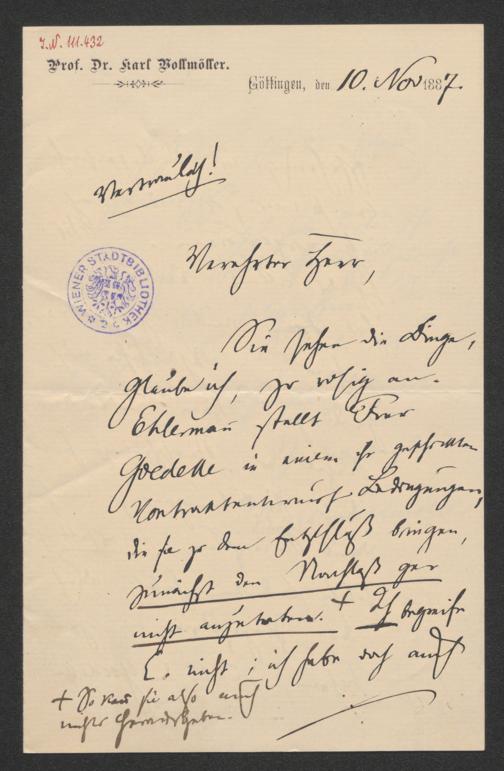 J.N. 111.432
Prof. Dr. Karl Vollmöller.
Göttingen, den 10. Nov 1887.
Vertraulich!
WIENER STADTBIBLIOTHEK
Verehrter Herr,
Sie sehen die Dinge,
glaube ich, zu rosig an.
Ehlermann stellt Frau
Goedeke in einem ihr geschickten
Kontraktentwurf Bedingungen,
die sie zu dem Entschluß bringen,
zunächst den Nachlaß gar
nicht anzutreten. + Ich begreife
Es nicht; ich habe doch auch
+ So kann sie also auch
nichts herausgeben.